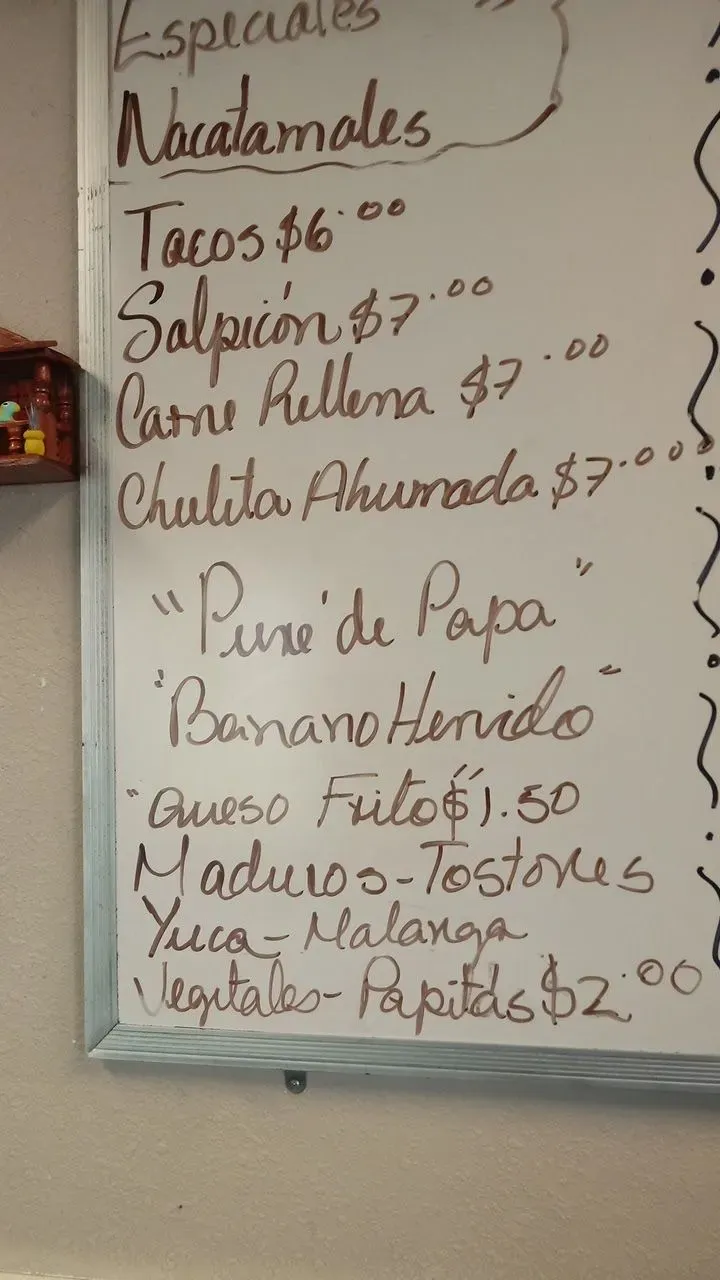 Especiales
Nacatamales
Tacos $6.00
Salpicón $7.00
Carne Rellena $7.00
Chulita Ahumada $7.000
"Puré de Papa"
"Banano Hervido"
"Queso Frito" $1.50
Maduros-Tostones
Yuca-Malanga
Vegitales-Papitas $2.00